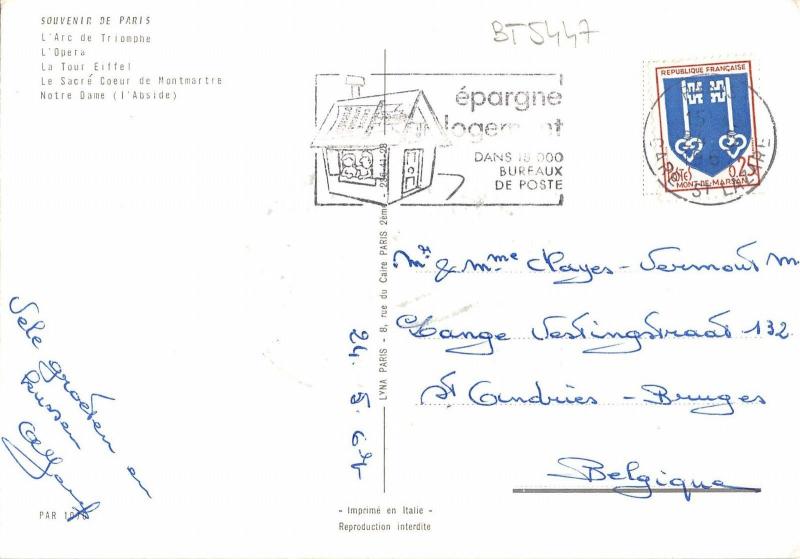 SOUVENIR DE PARIS
L'Arc de Triomphe
L'Opera
La Tour Eiffel
Le Sacré Coeur de Montmartre
Notre Dame (l'Abside)
BT5447
épargne
logement
DANS 18 000
BUREAUX
DE POSTE
REPUBLIQUE FRANÇAISE
POSTES 0,25
MONT-DE-MARSAN
ST LAZARE
LYNA PARIS - 8, rue du Caire PARIS 2ème 236-41-28
Mr & Mme Clayes-Vermout
Lange Vestingstraat 132
St Andries - Bruges
Belgique
24. 5.
Vele groeten en
kussen
PAR 10
- Imprimé en Italie -
Reproduction interdite